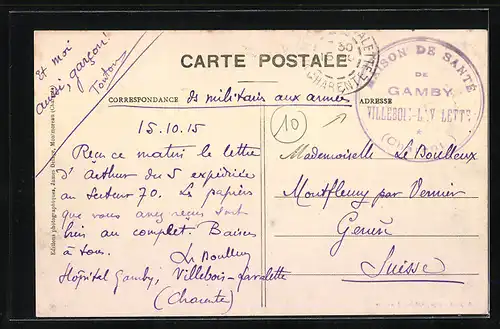 Et moi
aussi, garçon!
Toutou
CARTE POSTALE
CORRESPONDANCE
des militaires aux armées
ADRESSE
MAISON DE SANTÉ
DE
GAMBY
VILLEBOIS-LAVALETTE
(CHARENTE)
CHARENTE
10
15.10.15
Reçu ce matin la lettre
d'Arthur du 5 expédiée
au secteur 70. Les papiers
que vous avez reçus sont
bien au complet. Baisers
à tous.
Le Boulleux
Hôpital Gamby, Villebois-Lavalette
(Charente)
Mademoiselle Le Boulleux
Montfleury par Vernier
Genève
Suisse
Editions photographiques, James